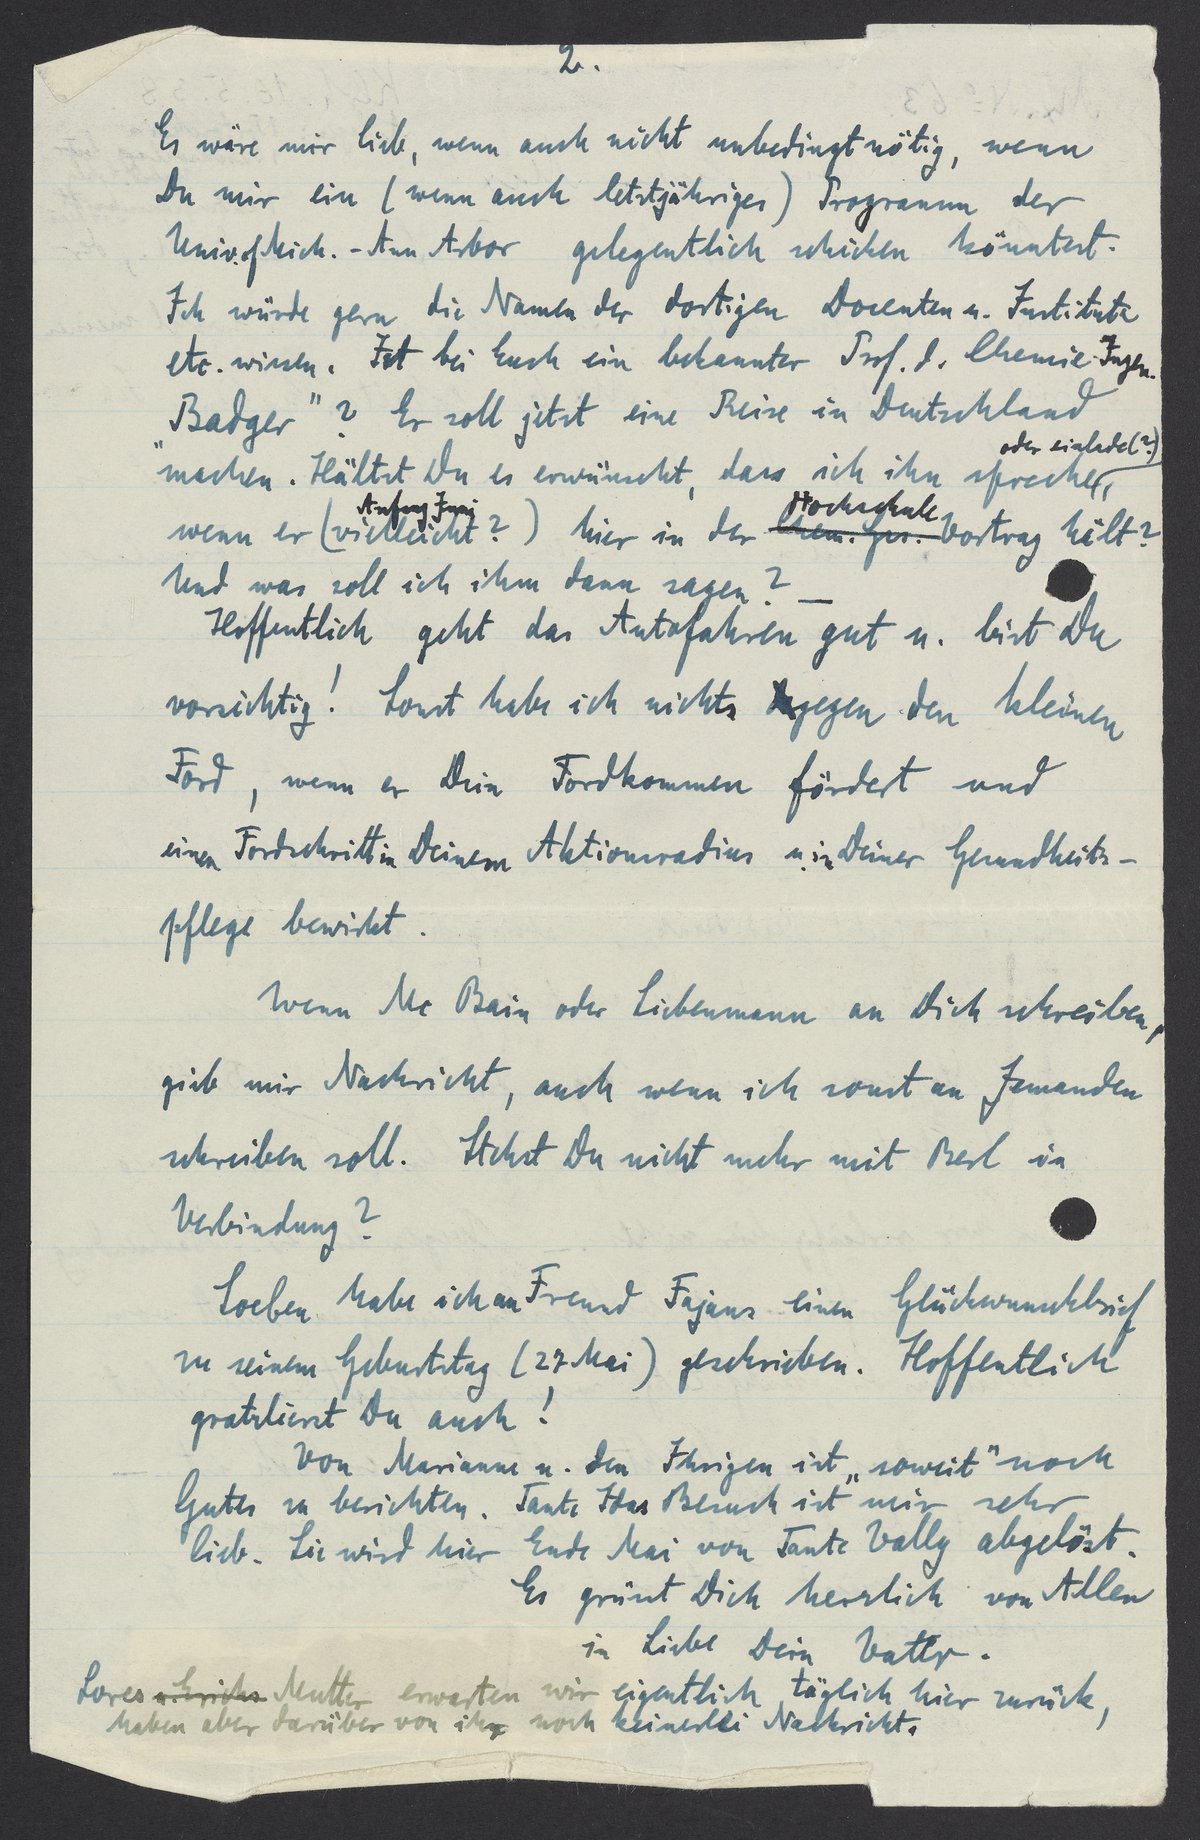 2.
Es wäre mir lieb, wenn auch nicht unbedingt nötig, wenn
Du mir ein (wenn auch letztjähriges) Programm der
Univ. of Mich. - Ann Arbor gelegentlich schicken könntest.
Ich würde gern die Namen der dortigen Docenten u. Institute
etc. wissen. Ist bei Euch ein bekannter Prof. d. Chemie-Ingen.
"Badger"? Er soll jetzt eine Reise in Deutschland
oder einlade(?)
machen. Hältst Du es erwünscht, dass ich ihn spreche,
Anfang Juni Hochschule
wenn er (vielleicht?) hier in der Chem. Ges. Vortrag hält?
Und was soll ich ihm dann sagen? —
Hoffentlich geht das Autofahren gut u. bist Du
vorsichtig! Sonst habe ich nichts gegen den kleinen
Ford, wenn er Dein Fordkommen fördert und
einen Fordschritt in Deinem Aktionsradius u. in Deiner Gesundheits-
pflege bewirkt.
Wenn Mc Bain oder Liebenmann an Dich schreiben,
gieb mir Nachricht, auch wenn ich sonst an Jemanden
schreiben soll. Stehst Du nicht mehr mit Berl in
Verbindung?
Soeben habe ich an Freund Fajans einen Glückwunschbrief
zu seinem Geburtstag (27 Mai) geschrieben. Hoffentlich
gratulierst Du auch!
Von Marianne u. den Ihrigen ist „soweit" noch
Gutes zu berichten. Tante Idas Besuch ist mir sehr
lieb. Sie wird hier Ende Mai von Tante Vally abgelöst.
Es grüsst Dich herzlich von Allen
in Liebe Dein Vater.
Lores u. Erichs Mutter erwarten wir eigentlich täglich hier zurück,
haben aber darüber von ihr noch keinerlei Nachricht.